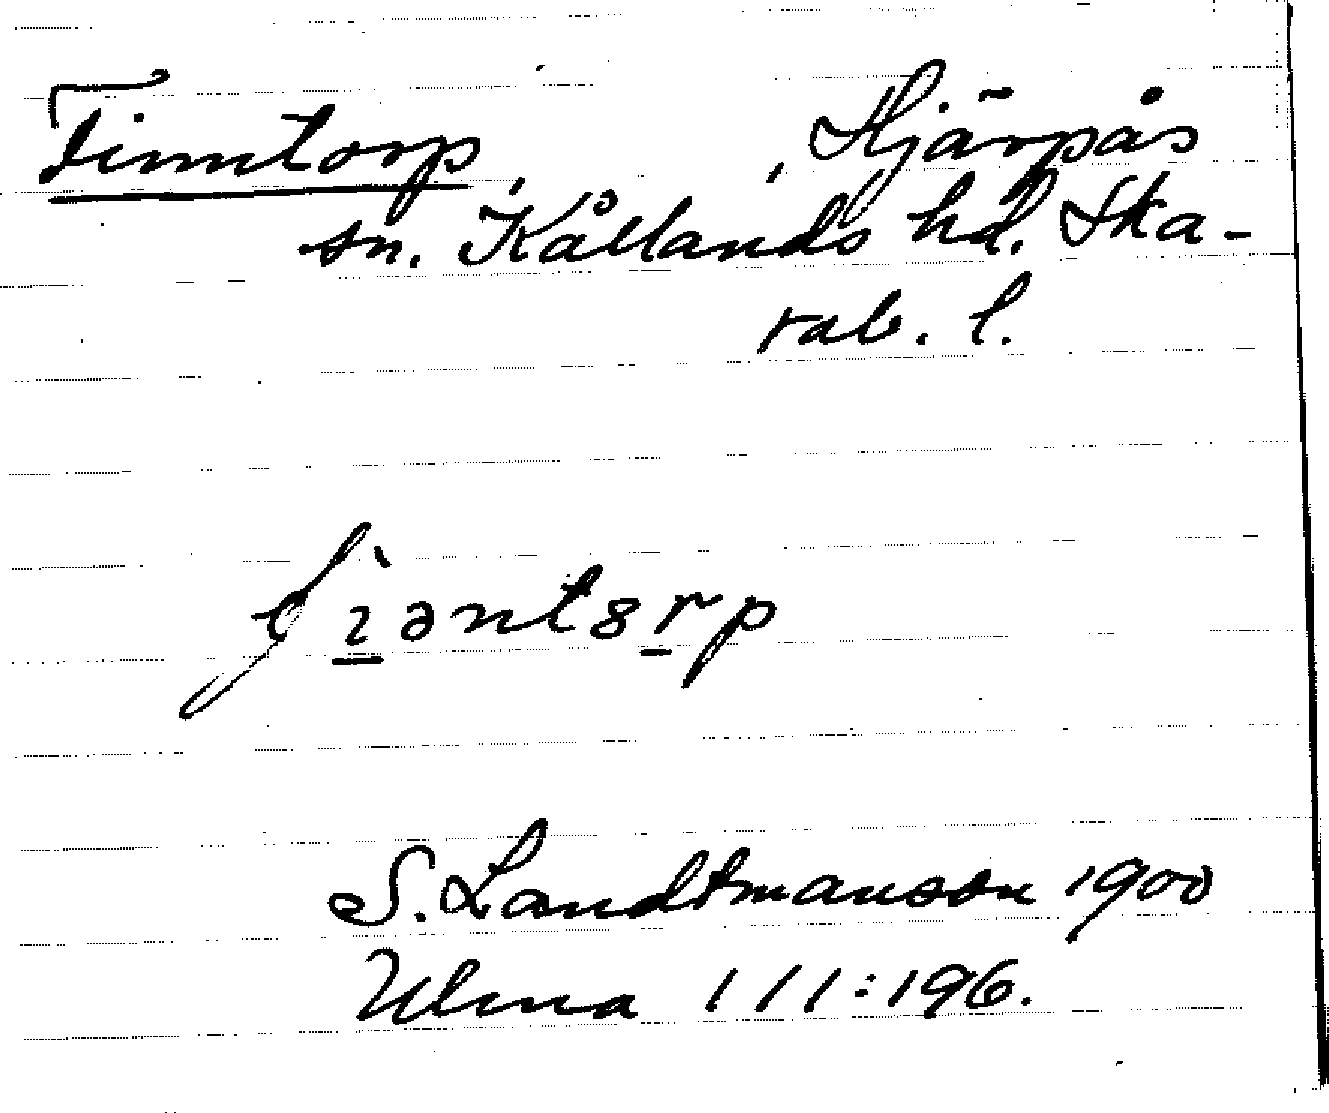 Finntorp, Hjärpås
sn. Kållands hd. Ska-
rab. l.
S. Landtmanson 1900
Ulma 111:196.